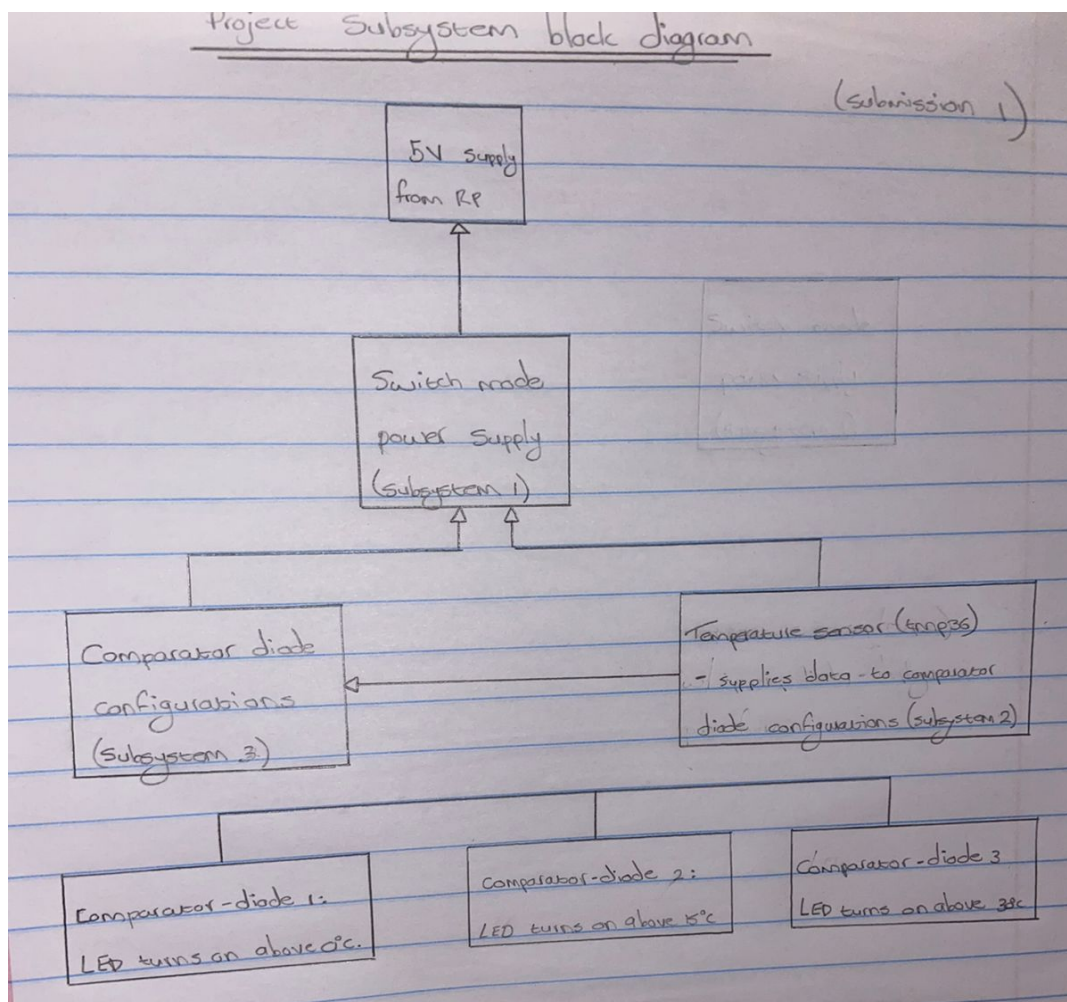 Project Subsystem block diagram
(submission 1)
5V supply
from RP
Switch mode
power supply
(subsystem 1)
Comparator diode
configurations
(subsystem 3)
Temperature sensor (tmp36)
- supplies data to comparator
diode configurations (subsystem 2)
Comparator-diode 1:
LED turns on above 0°c.
Comparator-diode 2:
LED turns on above 15°c
Comparator-diode 3
LED turns on above